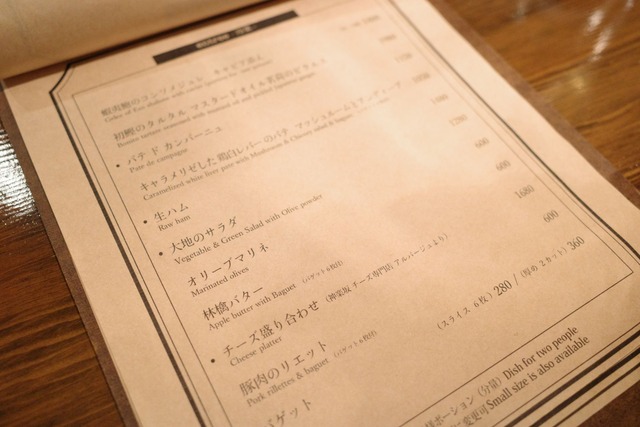 蝦夷鮑のコンソメジュレ キャビア添え
Gelee of Ezo abalone with caviar
初鰹のタルタル マスタードオイルと茗荷のピクルス
Bonito tartare seasoned with mustard oil and pickled Japanese ginger
• パテ ド カンパーニュ
Pate de campagne
キャラメリゼした鶏白レバーのパテ マッシュルームとアンディーブ
Caramelized white liver pate with Mushroom & Chicon salad & baguet
• 生ハム 1280
Raw ham
• 大地のサラダ 600
Vegetable & Green Salad with Olive powder
オリーブマリネ 600
Marinated olives
林檎バター 1680
Apple butter with Baguet (バゲット6枚付)
• チーズ盛り合わせ (神楽坂 チーズ専門店 アルパージュより) 600
Cheese platter
豚肉のリエット
Pork rillettes & baguet (バゲット6枚付)
バゲット (スライス 6枚) 280 / (厚め 2カット) 360
ポーション (分量) Dish for two people
変更可 Small size is also available